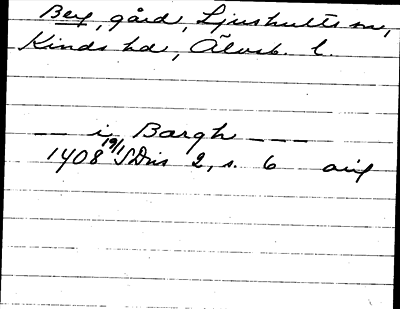 Berg, gård, Ljushults sn,
Kinds hd, Älvsb. l.
— i Bargh —
1408 19/1 SDns 2, s. 6 orig